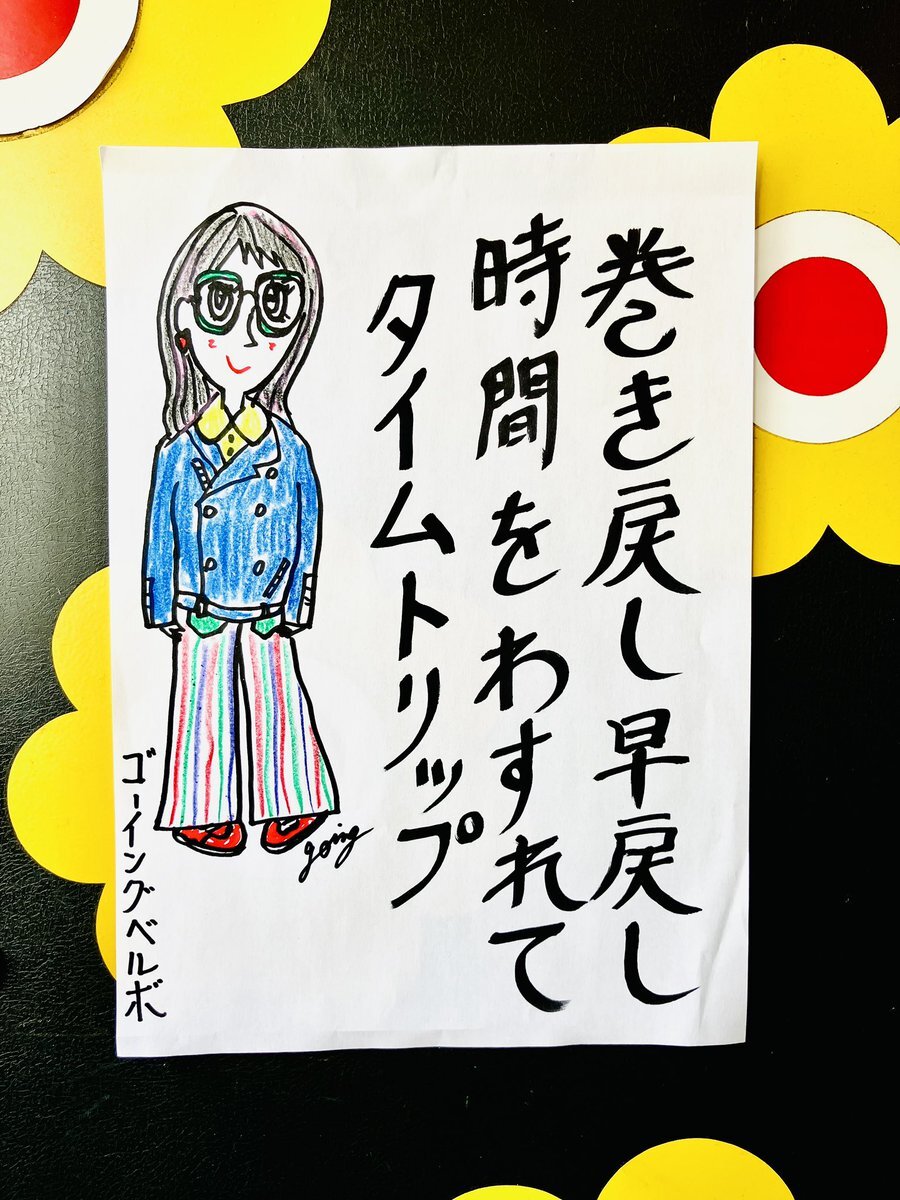 巻き戻し早戻し
時間をわすれて
タイムトリップ
ゴーイングベルボ
going